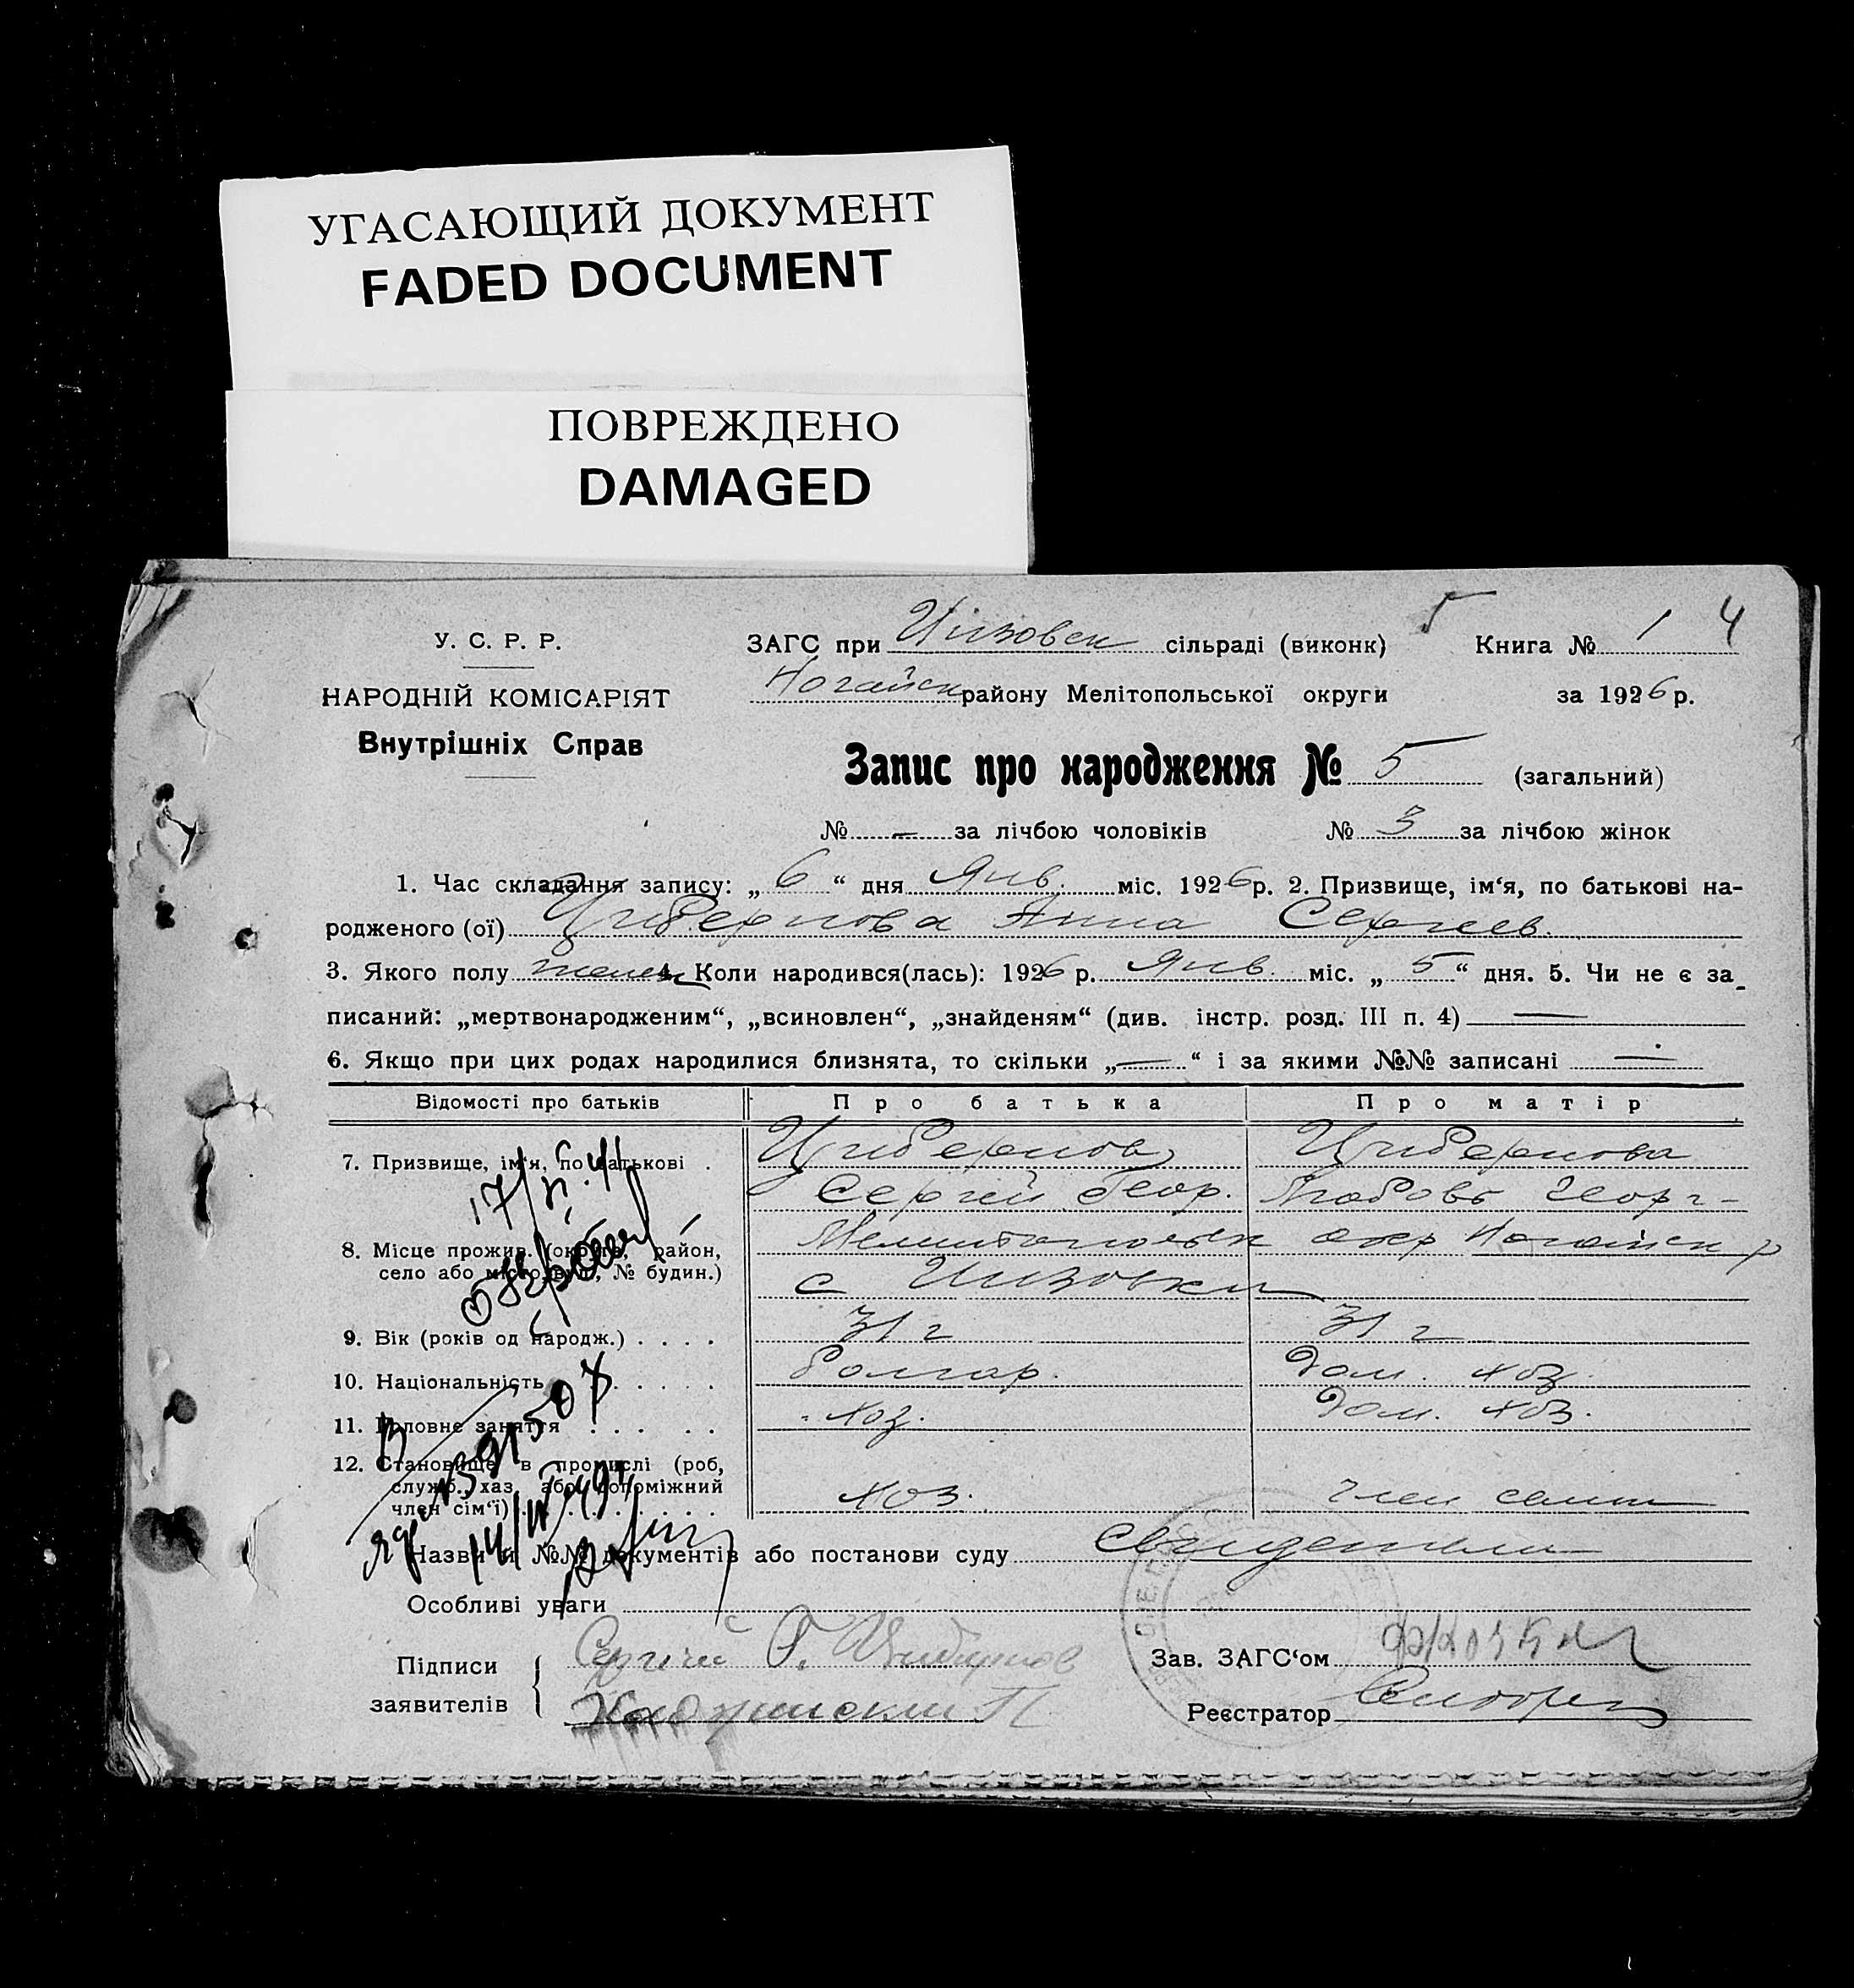 УГАСАЮЩИЙ ДОКУМЕНТ
FADED DOCUMENT
ПОВРЕЖДЕНО
DAMAGED
5 4
У. С. Р. Р.
НАРОДНІЙ КОМІСАРІЯТ
Внутрішніх Справ
ЗАГС при сільраді (виконк) Книга № 1
Ногайск району Мелітопольської округи за 1926 р.
Запис про народження № 5 (загальний)
№ — за лічбою чоловіків № 3 за лічбою жінок
1. Час складання запису: „ 6 “ дня Янв. міс. 1926 р. 2. Призвище, ім‘я, по батькові на-
родженого (ої) Цибернова Анна Сергиев.
3. Якого полу женск 4. Коли народився(лась): 1926 р. Янв. міс. „ 5 “ дня. 5. Чи не є за-
писаний: „мертвонародженим“, „всиновлен“, „знайденям“ (див. інстр. розд. III п. 4) —
6. Якщо при цих родах народилися близнята, то скільки „ — “ і за якими №№ записані —
Відомості про батьків Про батька Про матір
7. Призвище, ім‘я, по батькові . Цибернов Цибернова
Сергей Геор. Любовь Георг-
8. Місце прожив. (округа, район, Мелитопольск окр Ногайск р
село або місто, вул., № будин.) с
9. Вік (років од народж.) . . . . 31 г 31 г
10. Національність . . . . . . Болгар. Дом. хоз.
11. Головне заняття . . . . . хоз. Дом. хоз.
12. Становище в промислі (роб,
служб., хаз. або допоміжний
член сім‘ї) . . . . . . . . . хоз. член семьи
17/VI.41
14/IV 49
Назви й №№ документів або постанови суду Свидетели
Особливі уваги
Підписи
заявителів
Сергей Г. Цибернов
Зав. ЗАГС‘ом
Реєстратор